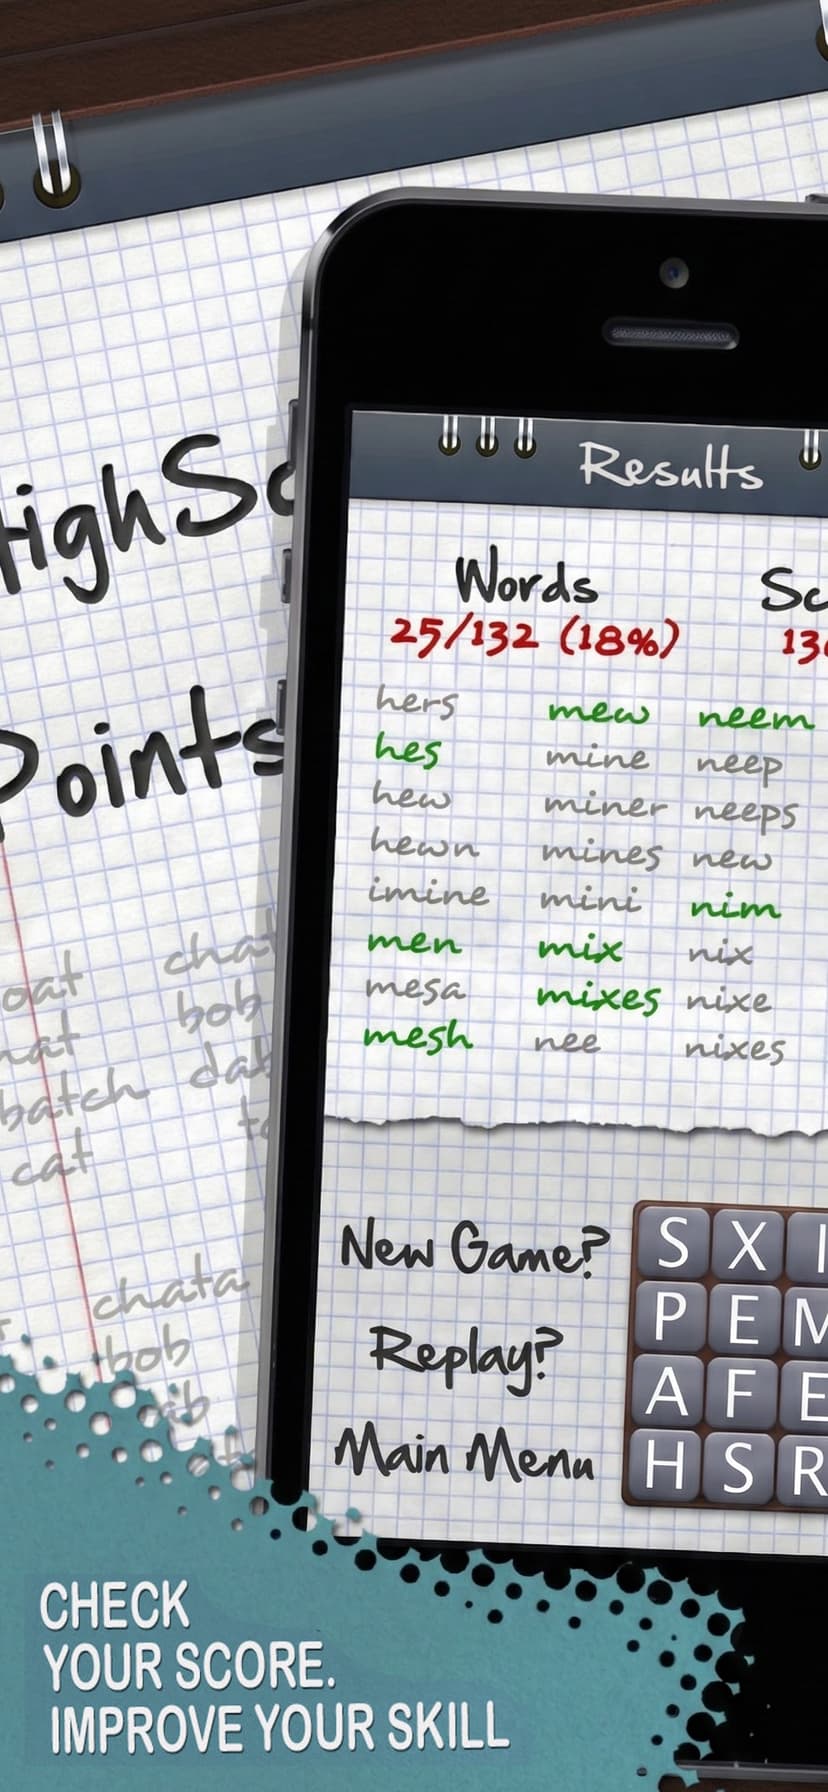 Results
Words
25/132 (18%)
hers mew neem
hes mine neep
hew miner neeps
hewn mines new
imine mini nim
men mix nix
mesa mixes nixe
mesh nee nixes
New Game?
Replay?
Main Menu
S X I
P E M
A F E
H S R
Points
bob
batch
cat
chata
bob
CHECK
YOUR SCORE.
IMPROVE YOUR SKILL